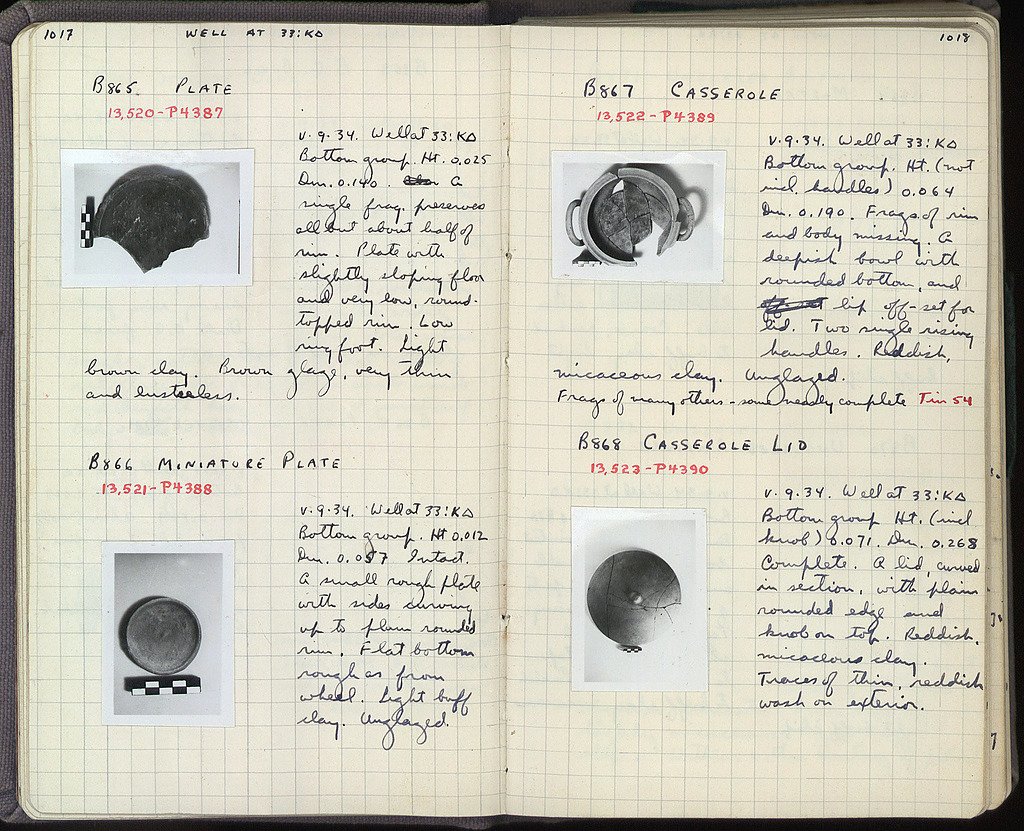 1017 WELL AT 33:ΚΔ
B865 PLATE
13,520-P4387
v.9.34. Well at 33:ΚΔ
Bottom group. Ht. 0.025
Dm. 0.140. A
single frag. preserves
all but about half of
rim. Plate with
slightly sloping floor
and very low, round-
topped rim. Low
ring foot. Light
brown clay. Brown glaze, very thin
and lusterless.
B866 MINIATURE PLATE
13,521-P4388
v.9.34. Well at 33:ΚΔ
Bottom group. Ht 0.012
Dm. 0.057 Intact.
A small rough plate
with sides curving
up to plain rounded
rim. Flat bottom
rough as from
wheel. Light buff
clay. Unglazed.
1018
B867 CASSEROLE
13,522-P4389
v.9.34. Well at 33:ΚΔ
Bottom group. Ht. (not
incl. handles) 0.064
Dm. 0.190. Frags. of rim
and body missing. A
deepish bowl with
rounded bottom, and
lip off-set for
lid. Two single rising
handles. Reddish,
micaceous clay. Unglazed.
Frags of many others - some nearly complete Tin 54
B868 CASSEROLE LID
13,523-P4390
v.9.34. Well at 33:ΚΔ
Bottom group Ht. (incl
knob) 0.071. Dm. 0.268
Complete. A lid, curved
in section, with plain
rounded edge and
knob on top. Reddish,
micaceous clay.
Traces of thin, reddish
wash on exterior.